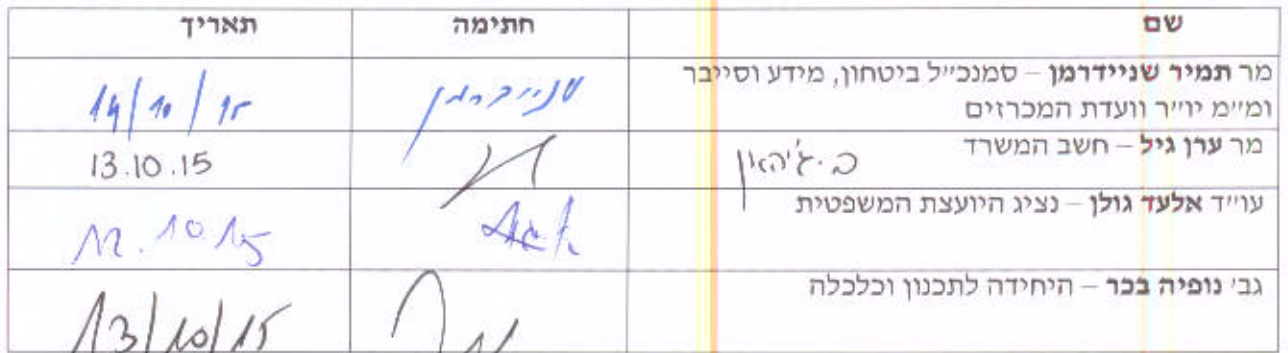 שם חתימה תאריך
מר תמיר שניידרמן – סמנכ״ל ביטחון, מידע וסייבר
ומ״מ יו״ר וועדת המכרזים שניידרמן 14/10/15
מר ערן גיל – חשב המשרד 13.10.15
עו״ד אלעד גולן – נציג היועצת המשפטית 12.10.15
גב׳ נופיה בכר – היחידה לתכנון וכלכלה
13/10/15